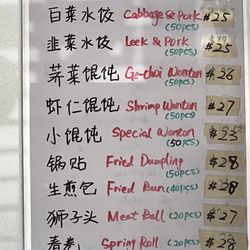 白菜水饺 Cabbage & Pork $25
(50pcs)
韭菜水饺 Leek & Pork $25
(50pcs)
荠菜馄饨 Ge-chai Wonton $26
(50pcs)
虾仁馄饨 Shrimp Wonton $27
(50pcs)
小馄饨 Special Wonton $23
(50pcs)
锅贴 Fried Dumpling $28
(50pcs)
生煎包 Fried Bun (40pcs) $28
狮子头 Meat Ball (20pcs) $27
春卷 Spring Roll (20pcs) $28